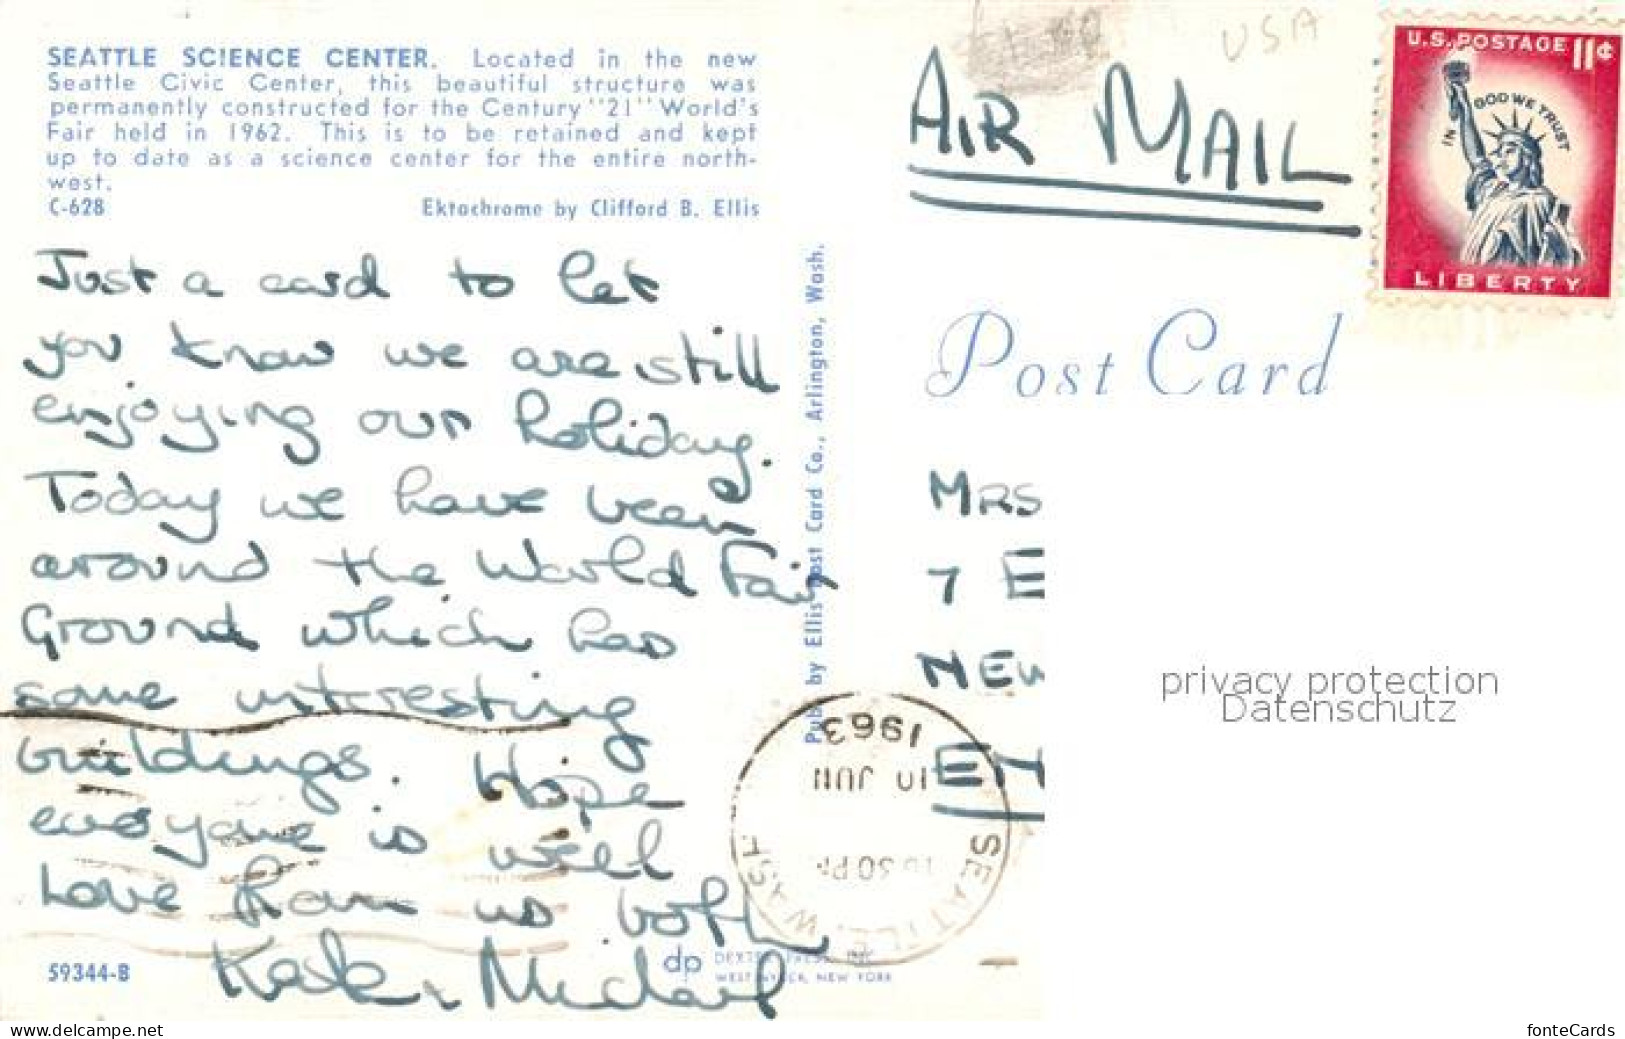 SEATTLE SCIENCE CENTER. Located in the new
Seattle Civic Center, this beautiful structure was
permanently constructed for the Century "21" World's
Fair held in 1962. This is to be retained and kept
up to date as a science center for the entire north-
west.
C-628 Ektachrome by Clifford B. Ellis
Just a card to let
you know we are still
enjoying our holiday.
Today we have been
around the World Fair
Ground which has
some interesting
buildings. Hope
everyone is well
Love from us both
& Michael
59344-B
dp DEXTER PRESS, INC.
WEST NYACK, NEW YORK
Pub. by Ellis Post Card Co., Arlington, Wash.
USA
AIR MAIL
U.S. POSTAGE 11¢
IN GOD WE TRUST
LIBERTY
Post Card
MRS
7 E
NEW
SEATTLE, WASH
10 JUN
1963
privacy protection
Datenschutz
www.delcampe.net
fonteCards